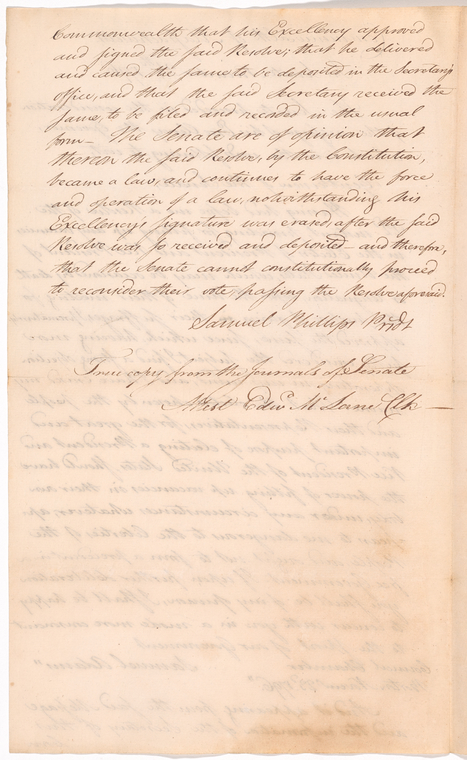 Commonwealth that his Excellency approved
and signed the said Resolve; that he delivered
and caused the same to be deposited in the Secretary's
office, and that the said Secretary received the
same, to be filed and recorded in the usual
form— The Senate are of opinion that
thereon the said Resolve, by the Constitution,
became a law, and continues to have the force
and operation of a law, notwithstanding his
Excellency's signature was erased, after the said
Resolve was so received and deposited and therefore,
that the Senate cannot constitutionally proceed
to reconsider their vote, passing the Resolve aforesaid.
Samuel Phillips Presdt
True copy from the Journals of Senate
Attest Edwd McLane Clk—